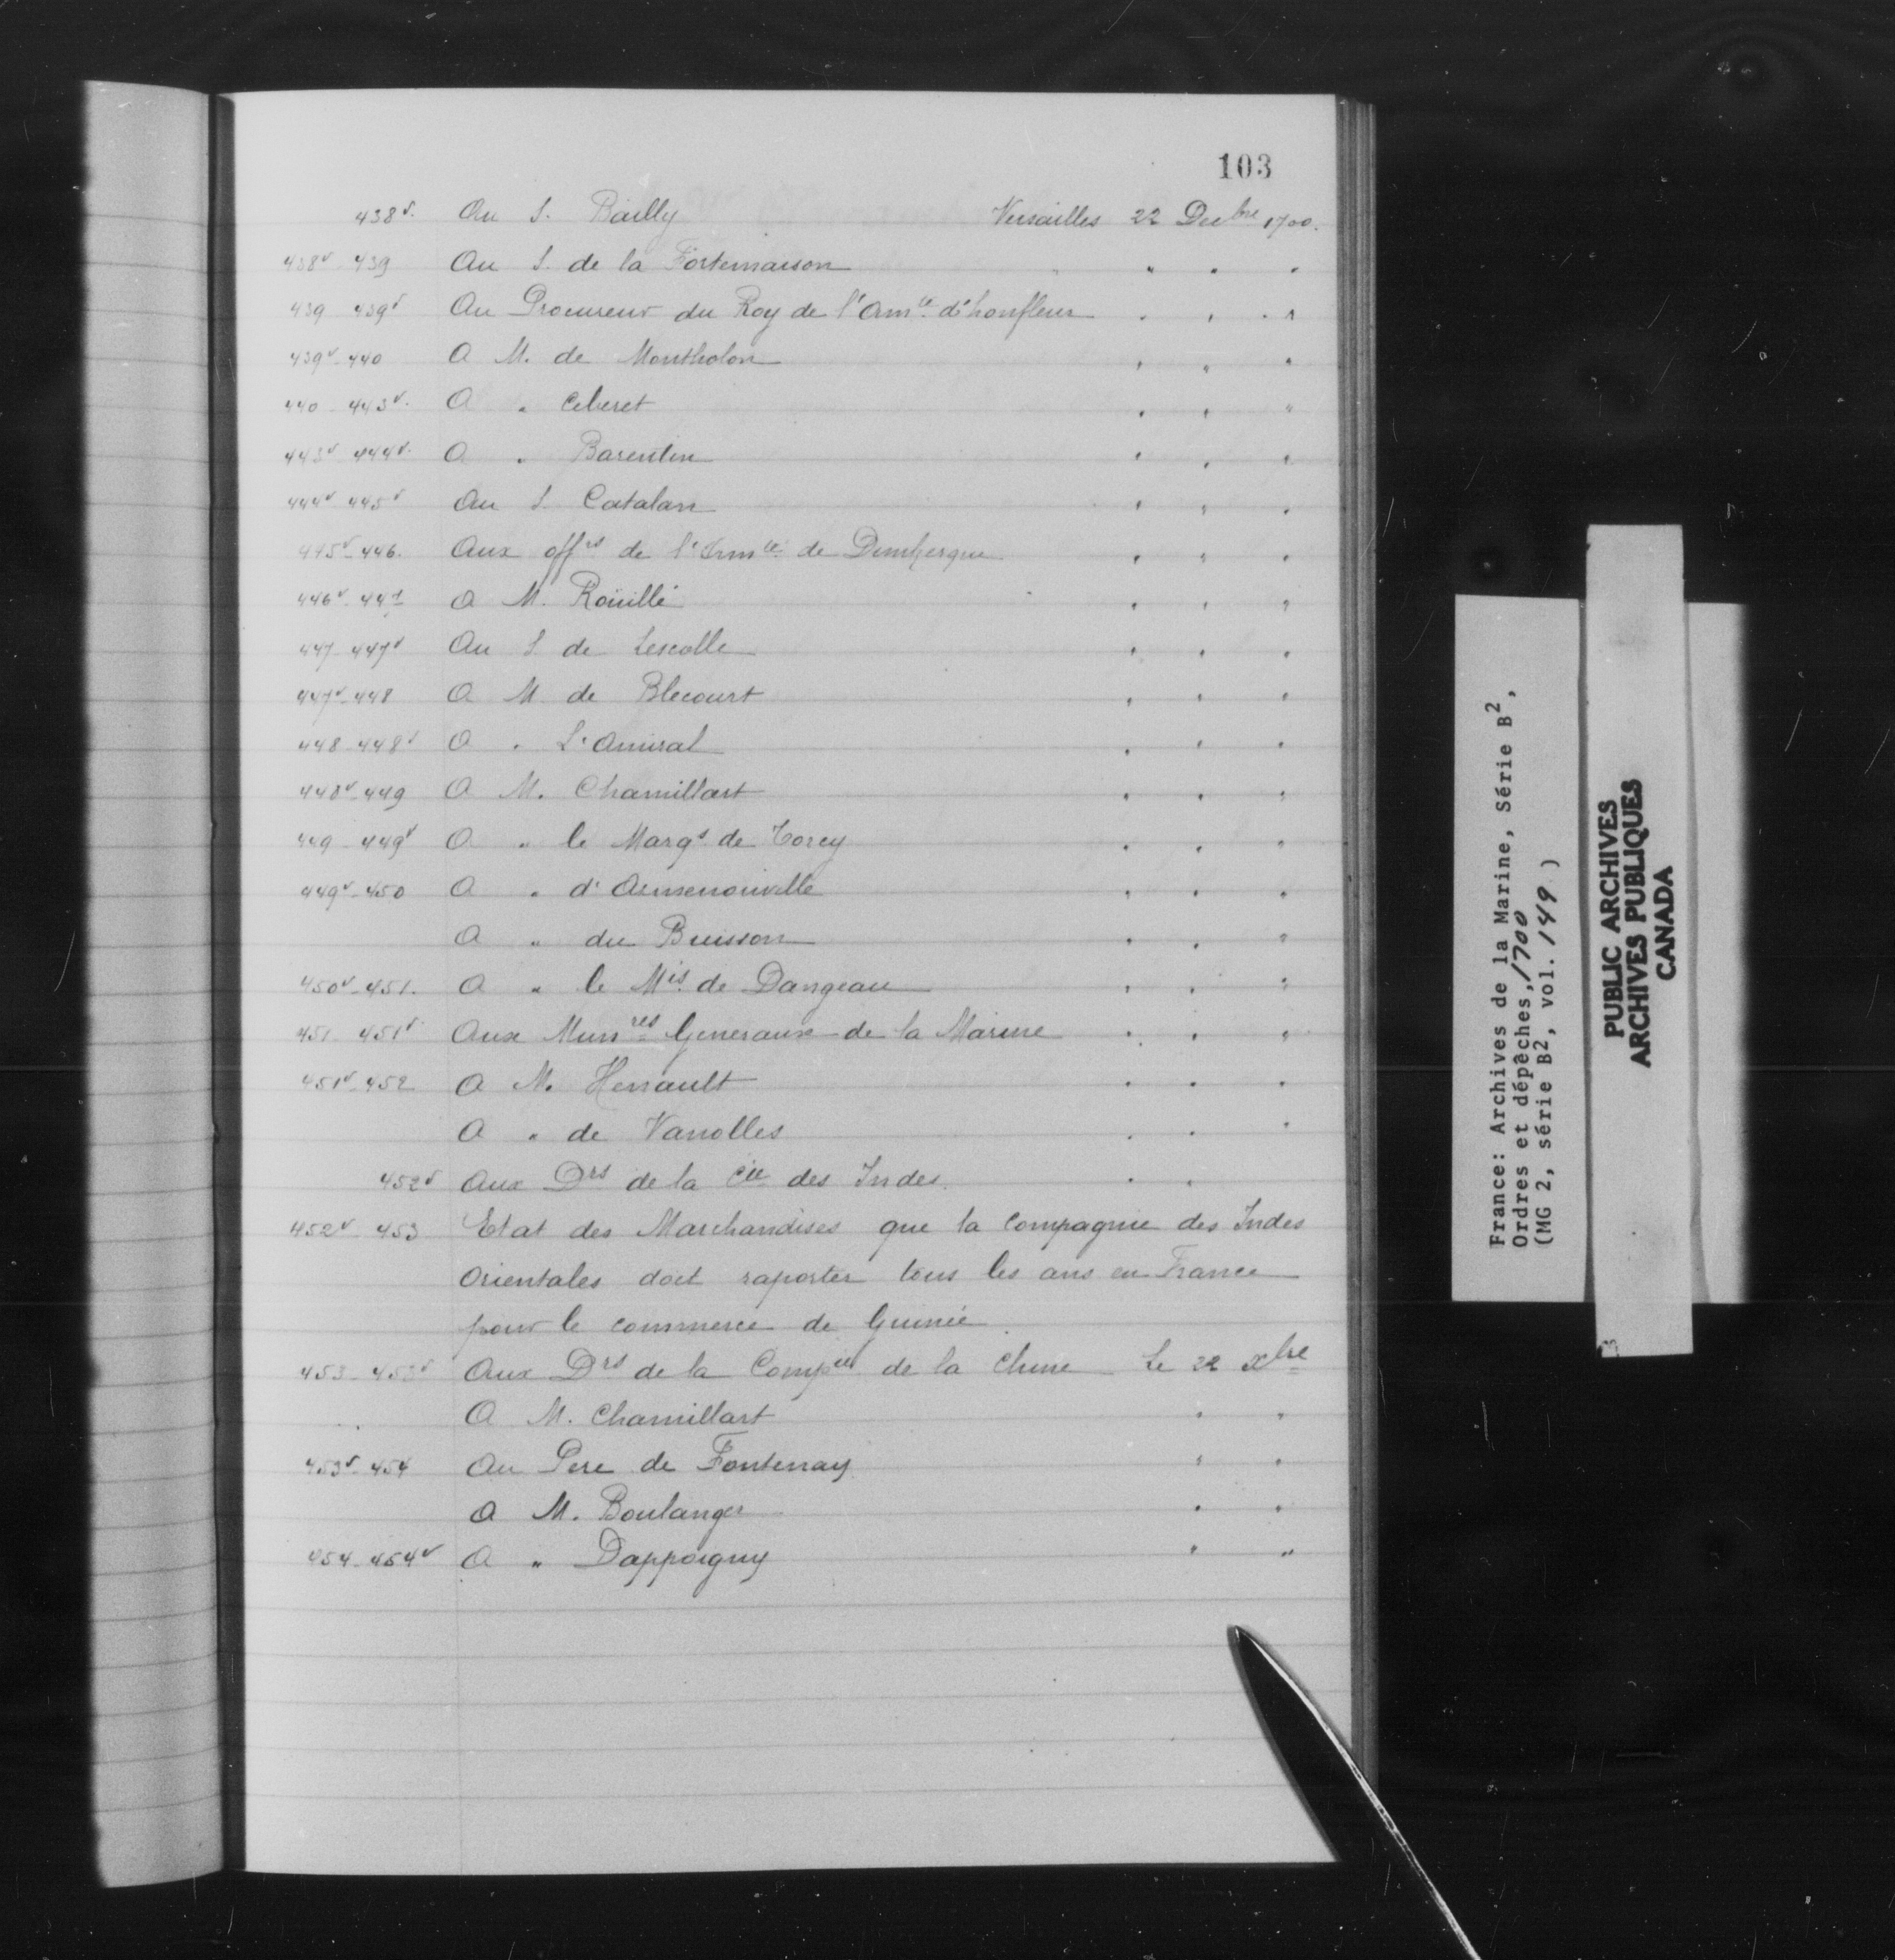 103
438v. Au S. Bailly Versailles 22 Decbre 1700.
438v-439 Au S. de la Fortemaison " " "
439-439v Au Procureur du Roy de l'Amté d'honfleur " " "
439v-440 A M. de Montholon " " "
440-443v. A " Ceberet " " "
443v-444v. A " Barentin " " "
444v-445v Au S. Catalan " " "
445v-446. Aux offrs de l'Amté de Dunkerque " " "
446v-447 A M. Roüillé " " "
447-447v Au S. de Lescolle " " "
447v-448 A M. de Blecourt " " "
448-448v A " L'Amiral " " "
448v-449 A M. Chamillart " " "
449-449v A " le Marqs de Torcy " " "
449v-450 A " d'Armenonville " " "
A " du Buisson " " "
450v-451. A " le Mis de Dangeau " " "
451-451v Aux Munres Generaux de la Marine " " "
451v-452 A M. Herrault " " "
A " de Vanolles " " "
452v Aux Drs de la Cie des Indes. " "
452v-453 Etat des Marchandises que la Compagnie des Indes
Orientales doit raporter tous les ans en France
pour le commerce de Guinée.
453-453v Aux Drs de la Compie de la Chine Le 22 xbre
A M. Chamillart " "
453v-454 Au Pere de Fontenay " "
A M. Boulanger " "
454-454v A " Dappoigny " "
France: Archives de la Marine, Série B2,
Ordres et dépêches, 1700
(MG 2, série B2, vol. 149 )
PUBLIC ARCHIVES
ARCHIVES PUBLIQUES
CANADA